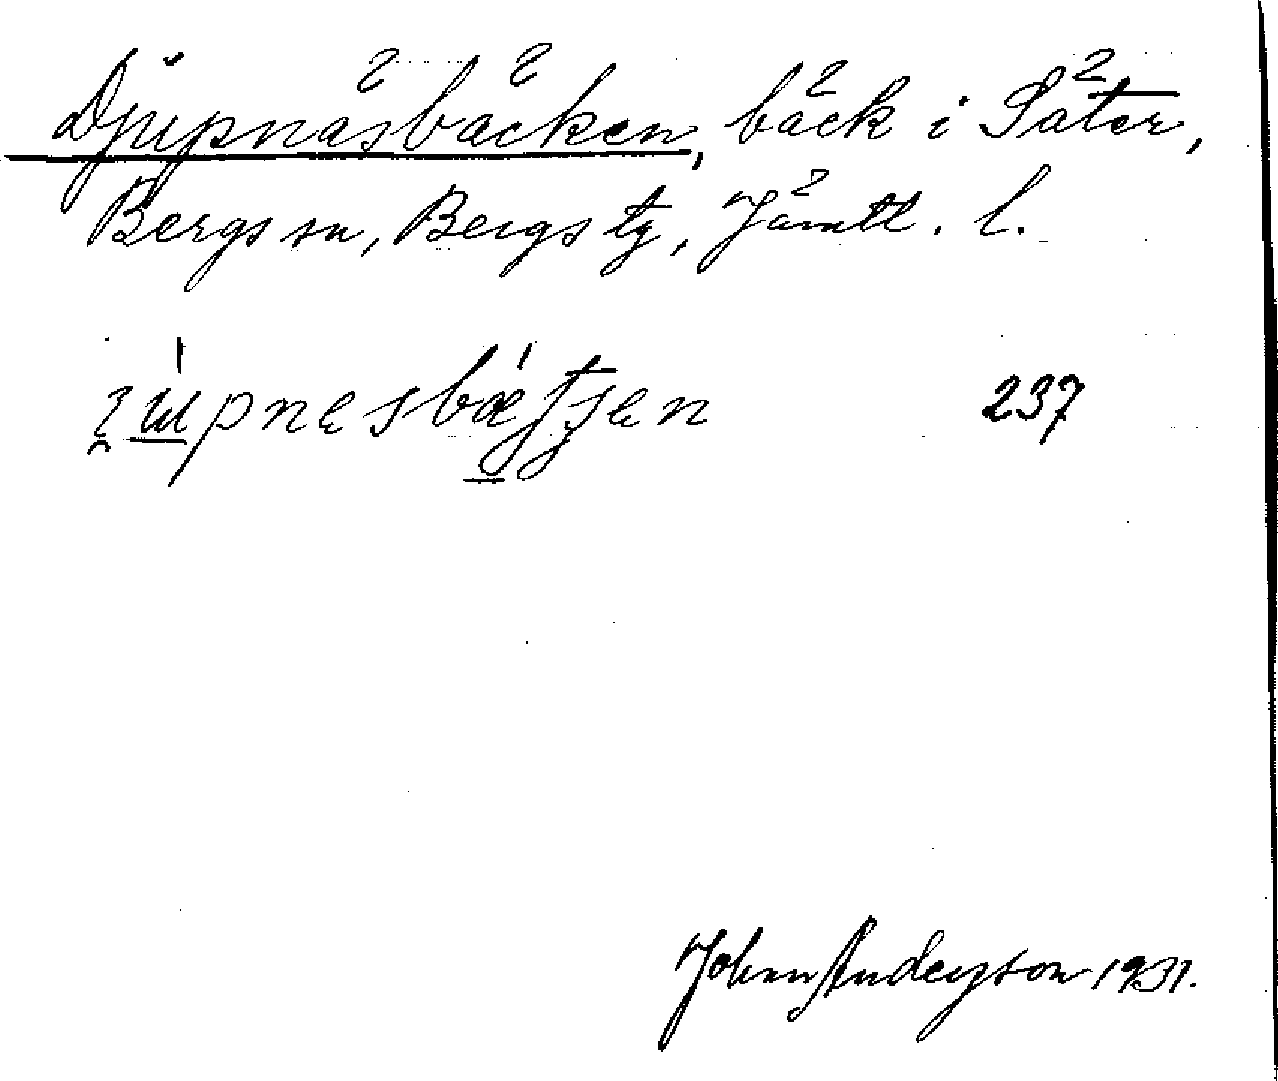 Djupnäsbäcken, bäck i Säter,
Bergs sn, Bergs tg, Jämtl. l.
237
John Anderson 1931.